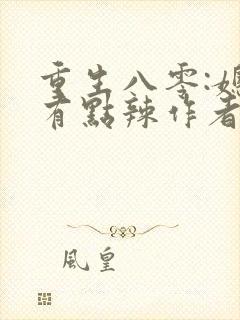 重生八零:媳
有點辣作者
風皇